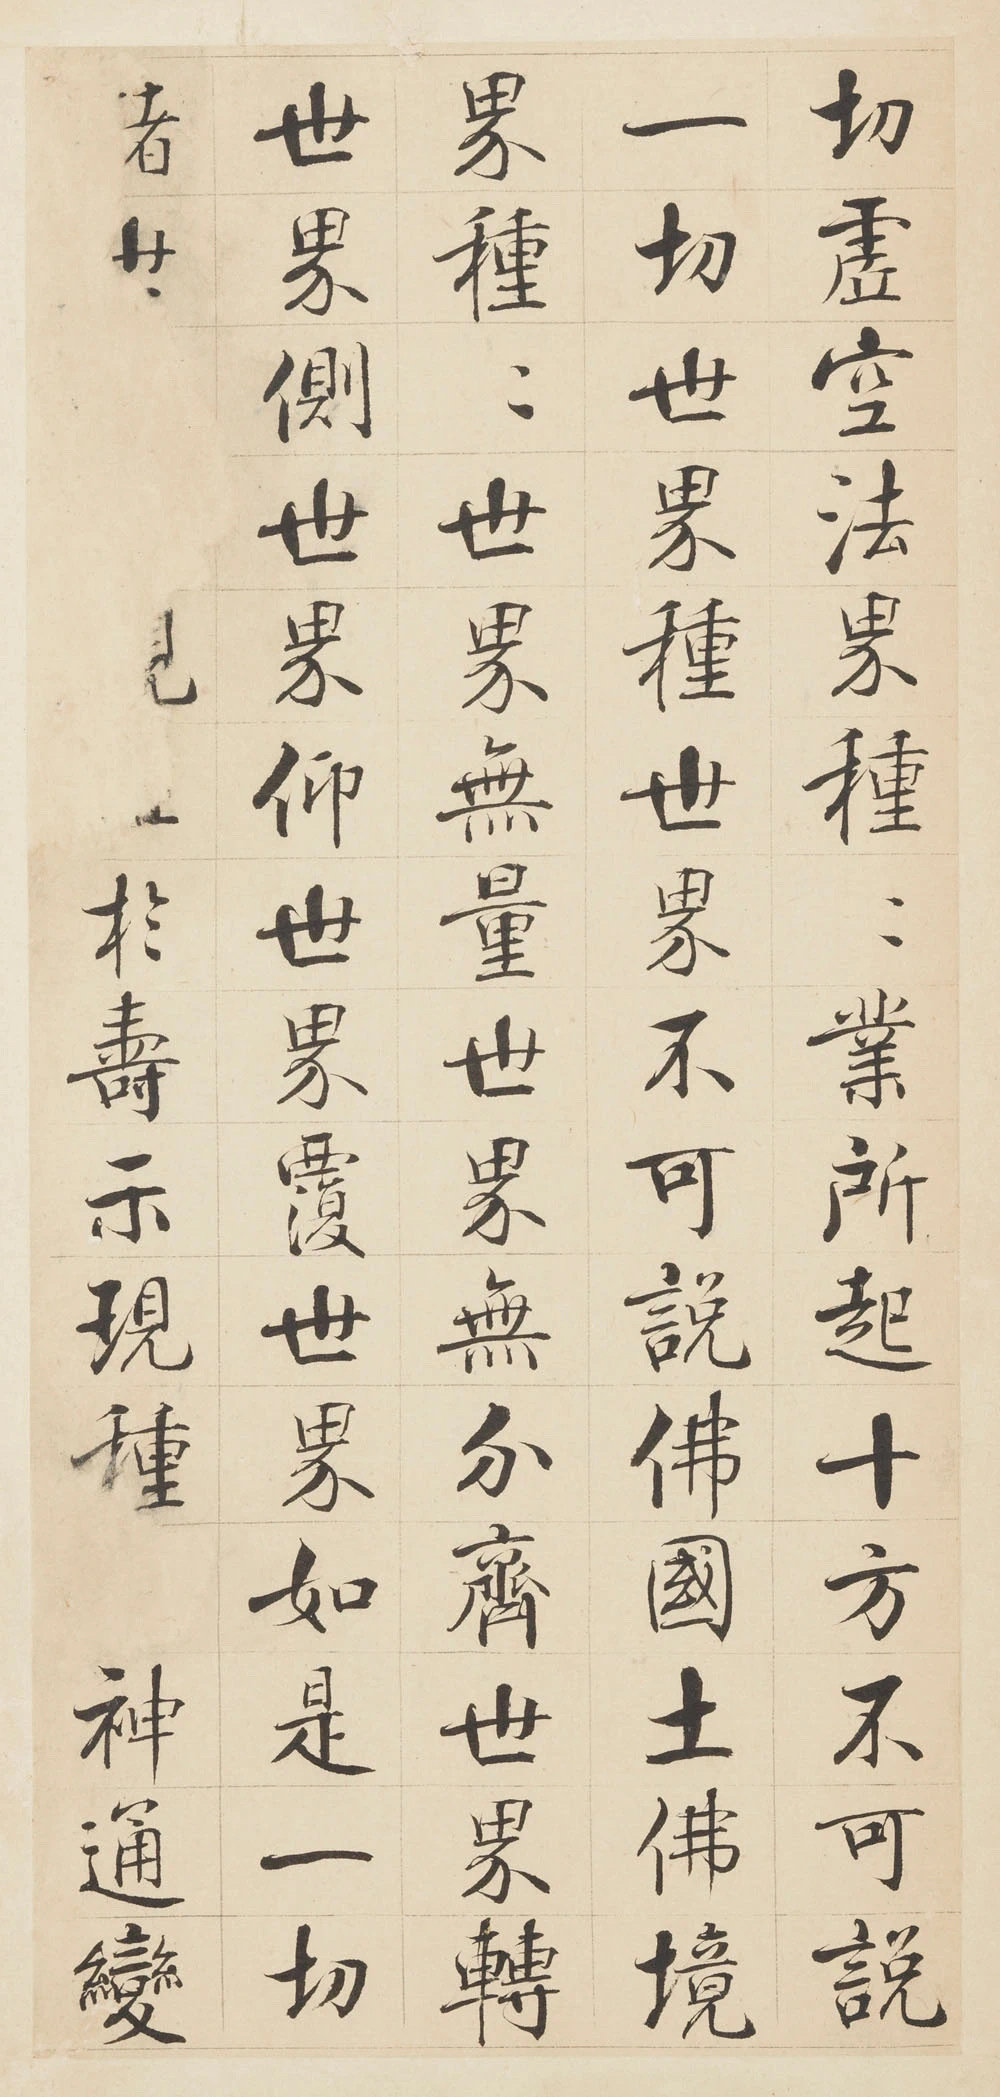 切虛空法界種〻業所起十方不可說
一切世界種世界不可說佛國土佛境
界種〻世界無量世界無分齊世界轉
世界側世界仰世界覆世界如是一切
者於壽示現種神通變